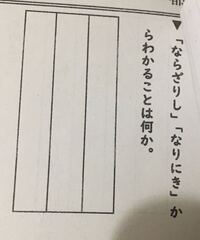 ▼「ならざりし」「なりにき」か
らわかることは何か。